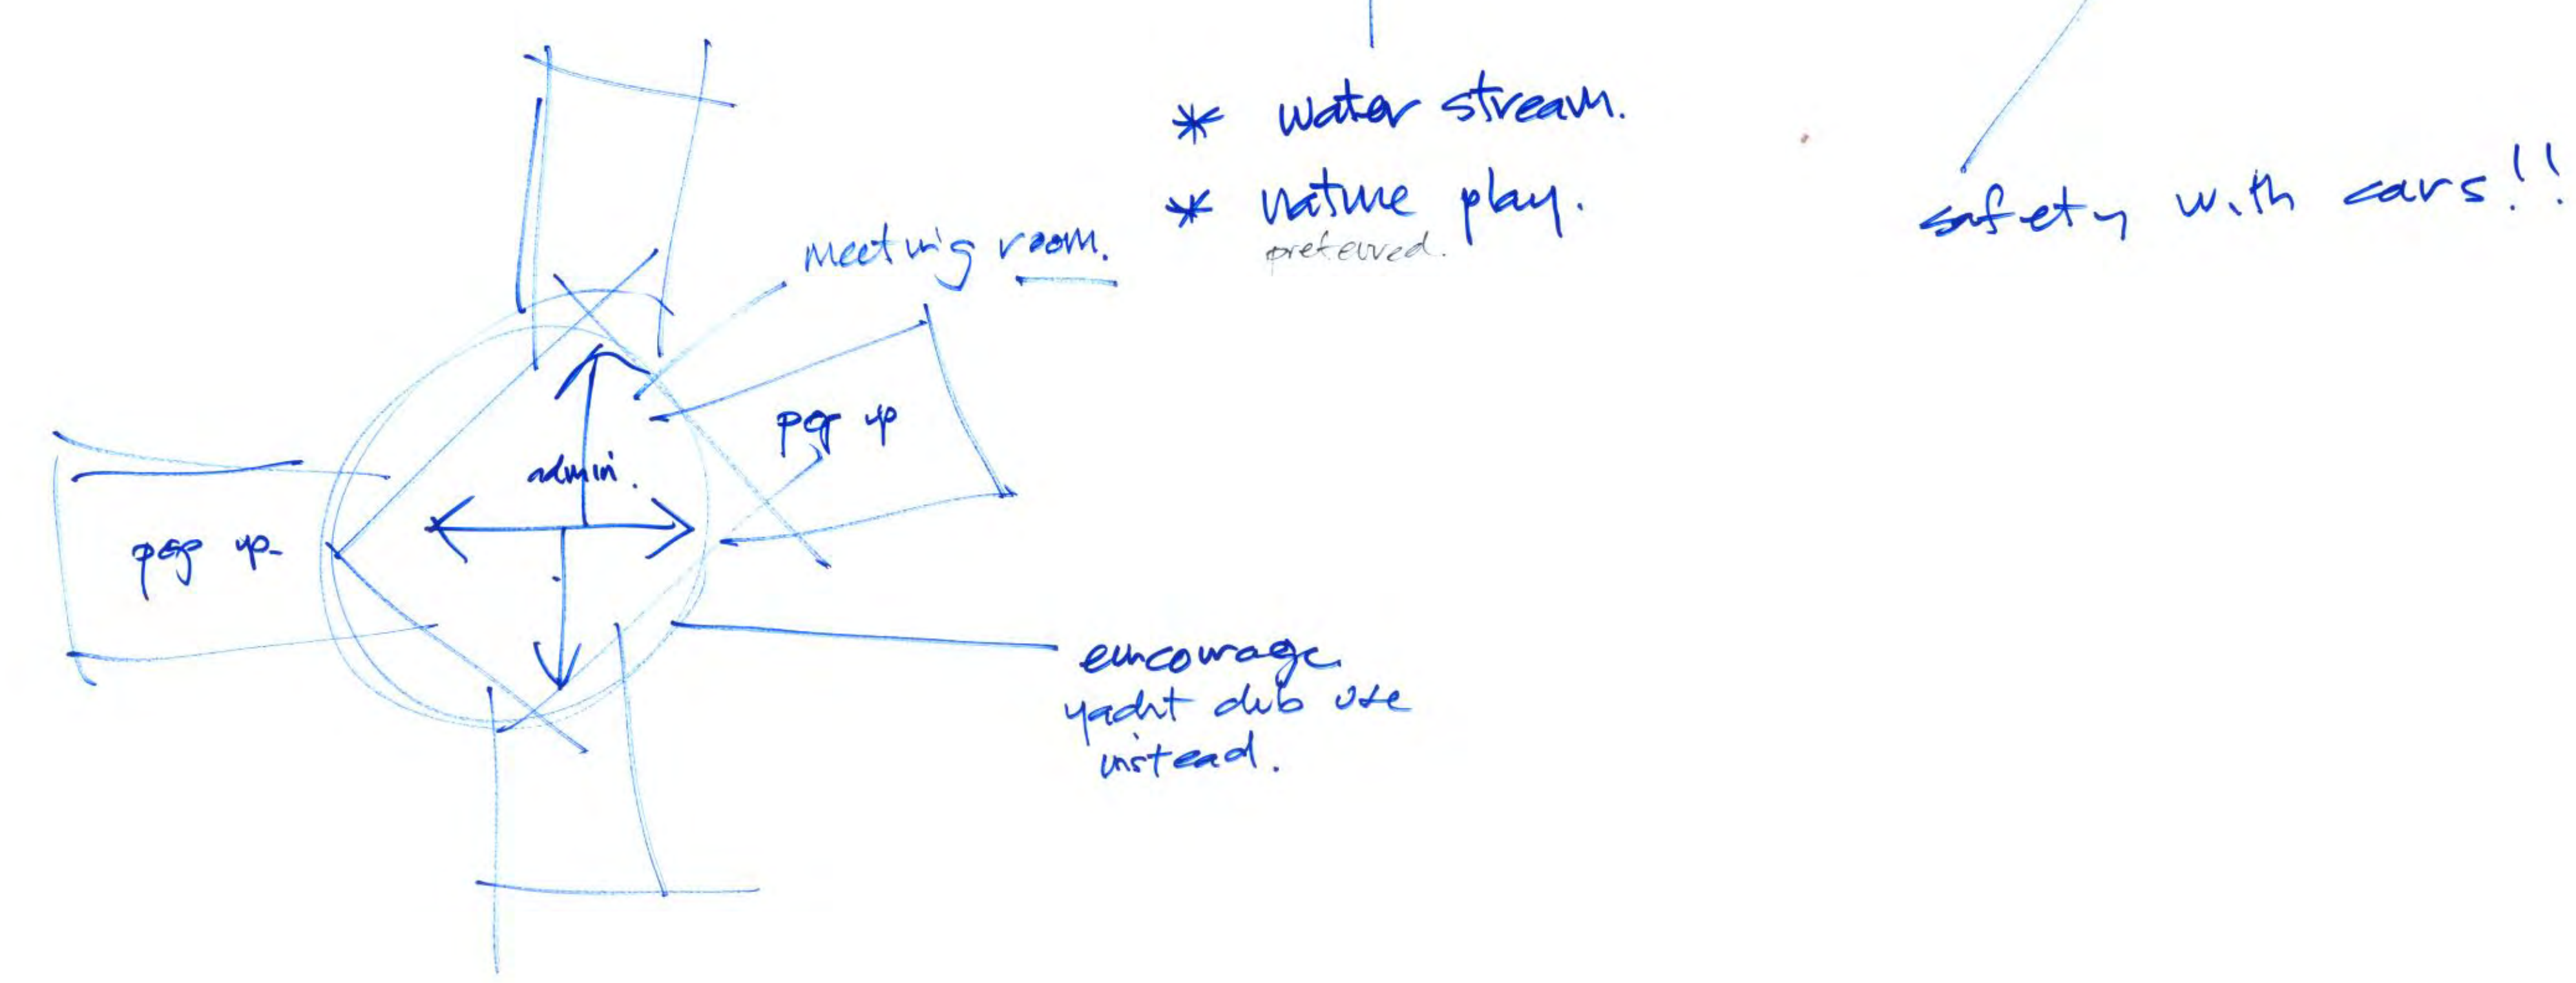 * water stream.
* nature play.
preferred.
safety with cars!!
meeting room.
pop up
admin.
pop up
encourage
yacht club use
instead.